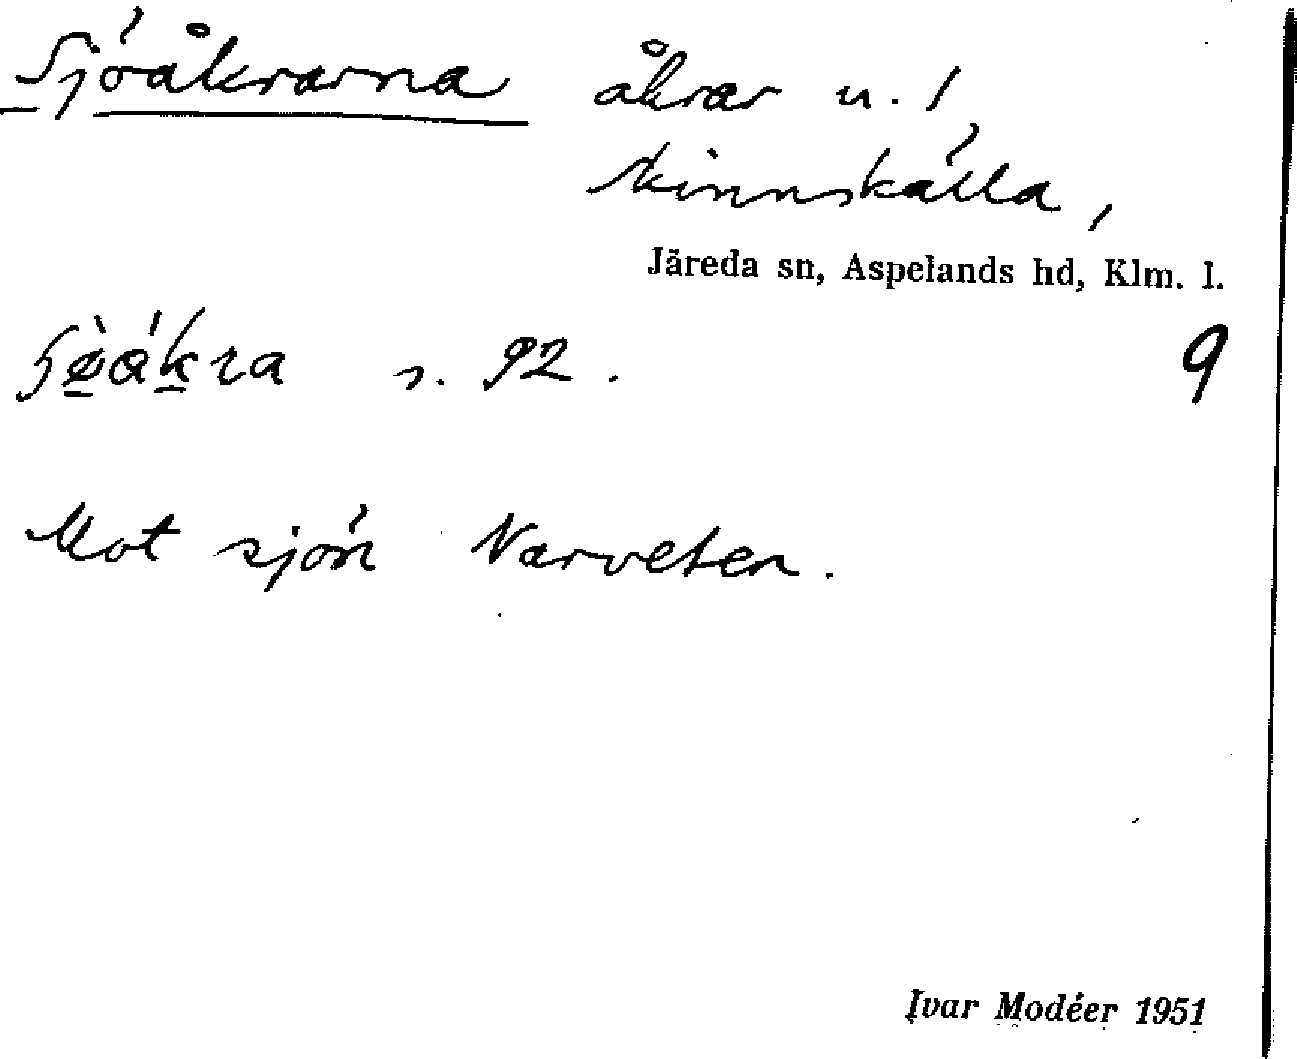 Sjöåkrarna åkrar u. /
Kinnskälla,
Järeda sn, Aspelands hd, Klm. l.
s. 92. 9
Mot sjön Narveten.
Ivar Modéer 1951